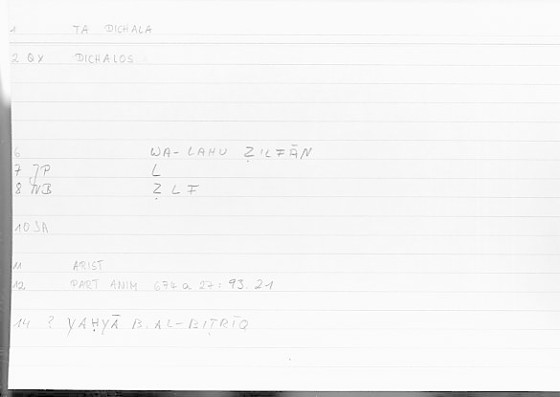 1 TA DICHALA
2 QX DICHALOS
6 WA-LAHU ẒILFĀN
7 JP L
8 NB Ẓ L F
10 JA
11 ARIST
12 PART ANIM 674 a 27: 93.21
14 ? YAḤYĀ B. AL-BIṬRĪQ